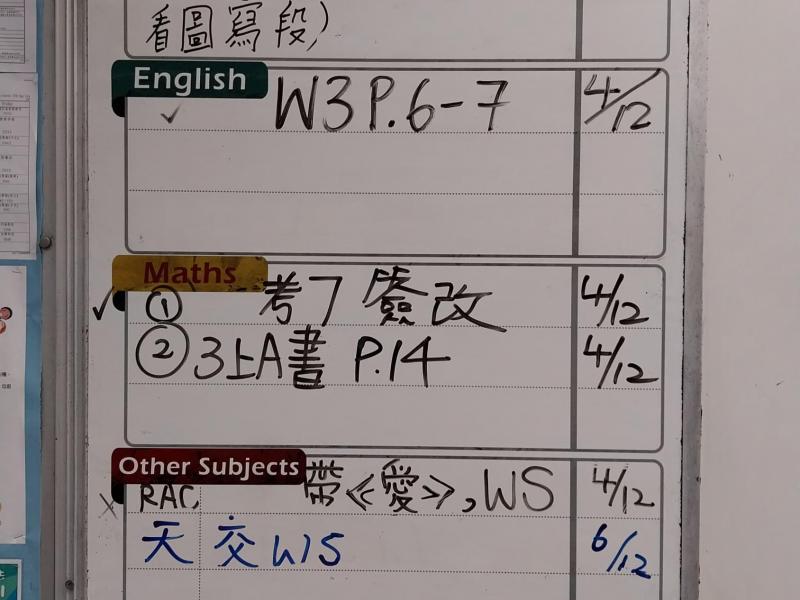 看圖寫段)
English
W3P.6-7 4/12
Maths
① 考7 簽改 4/12
② 3上A書 P.14 4/12
Other Subjects
RAC 帶《愛》,WS 4/12
天 交WS 6/12